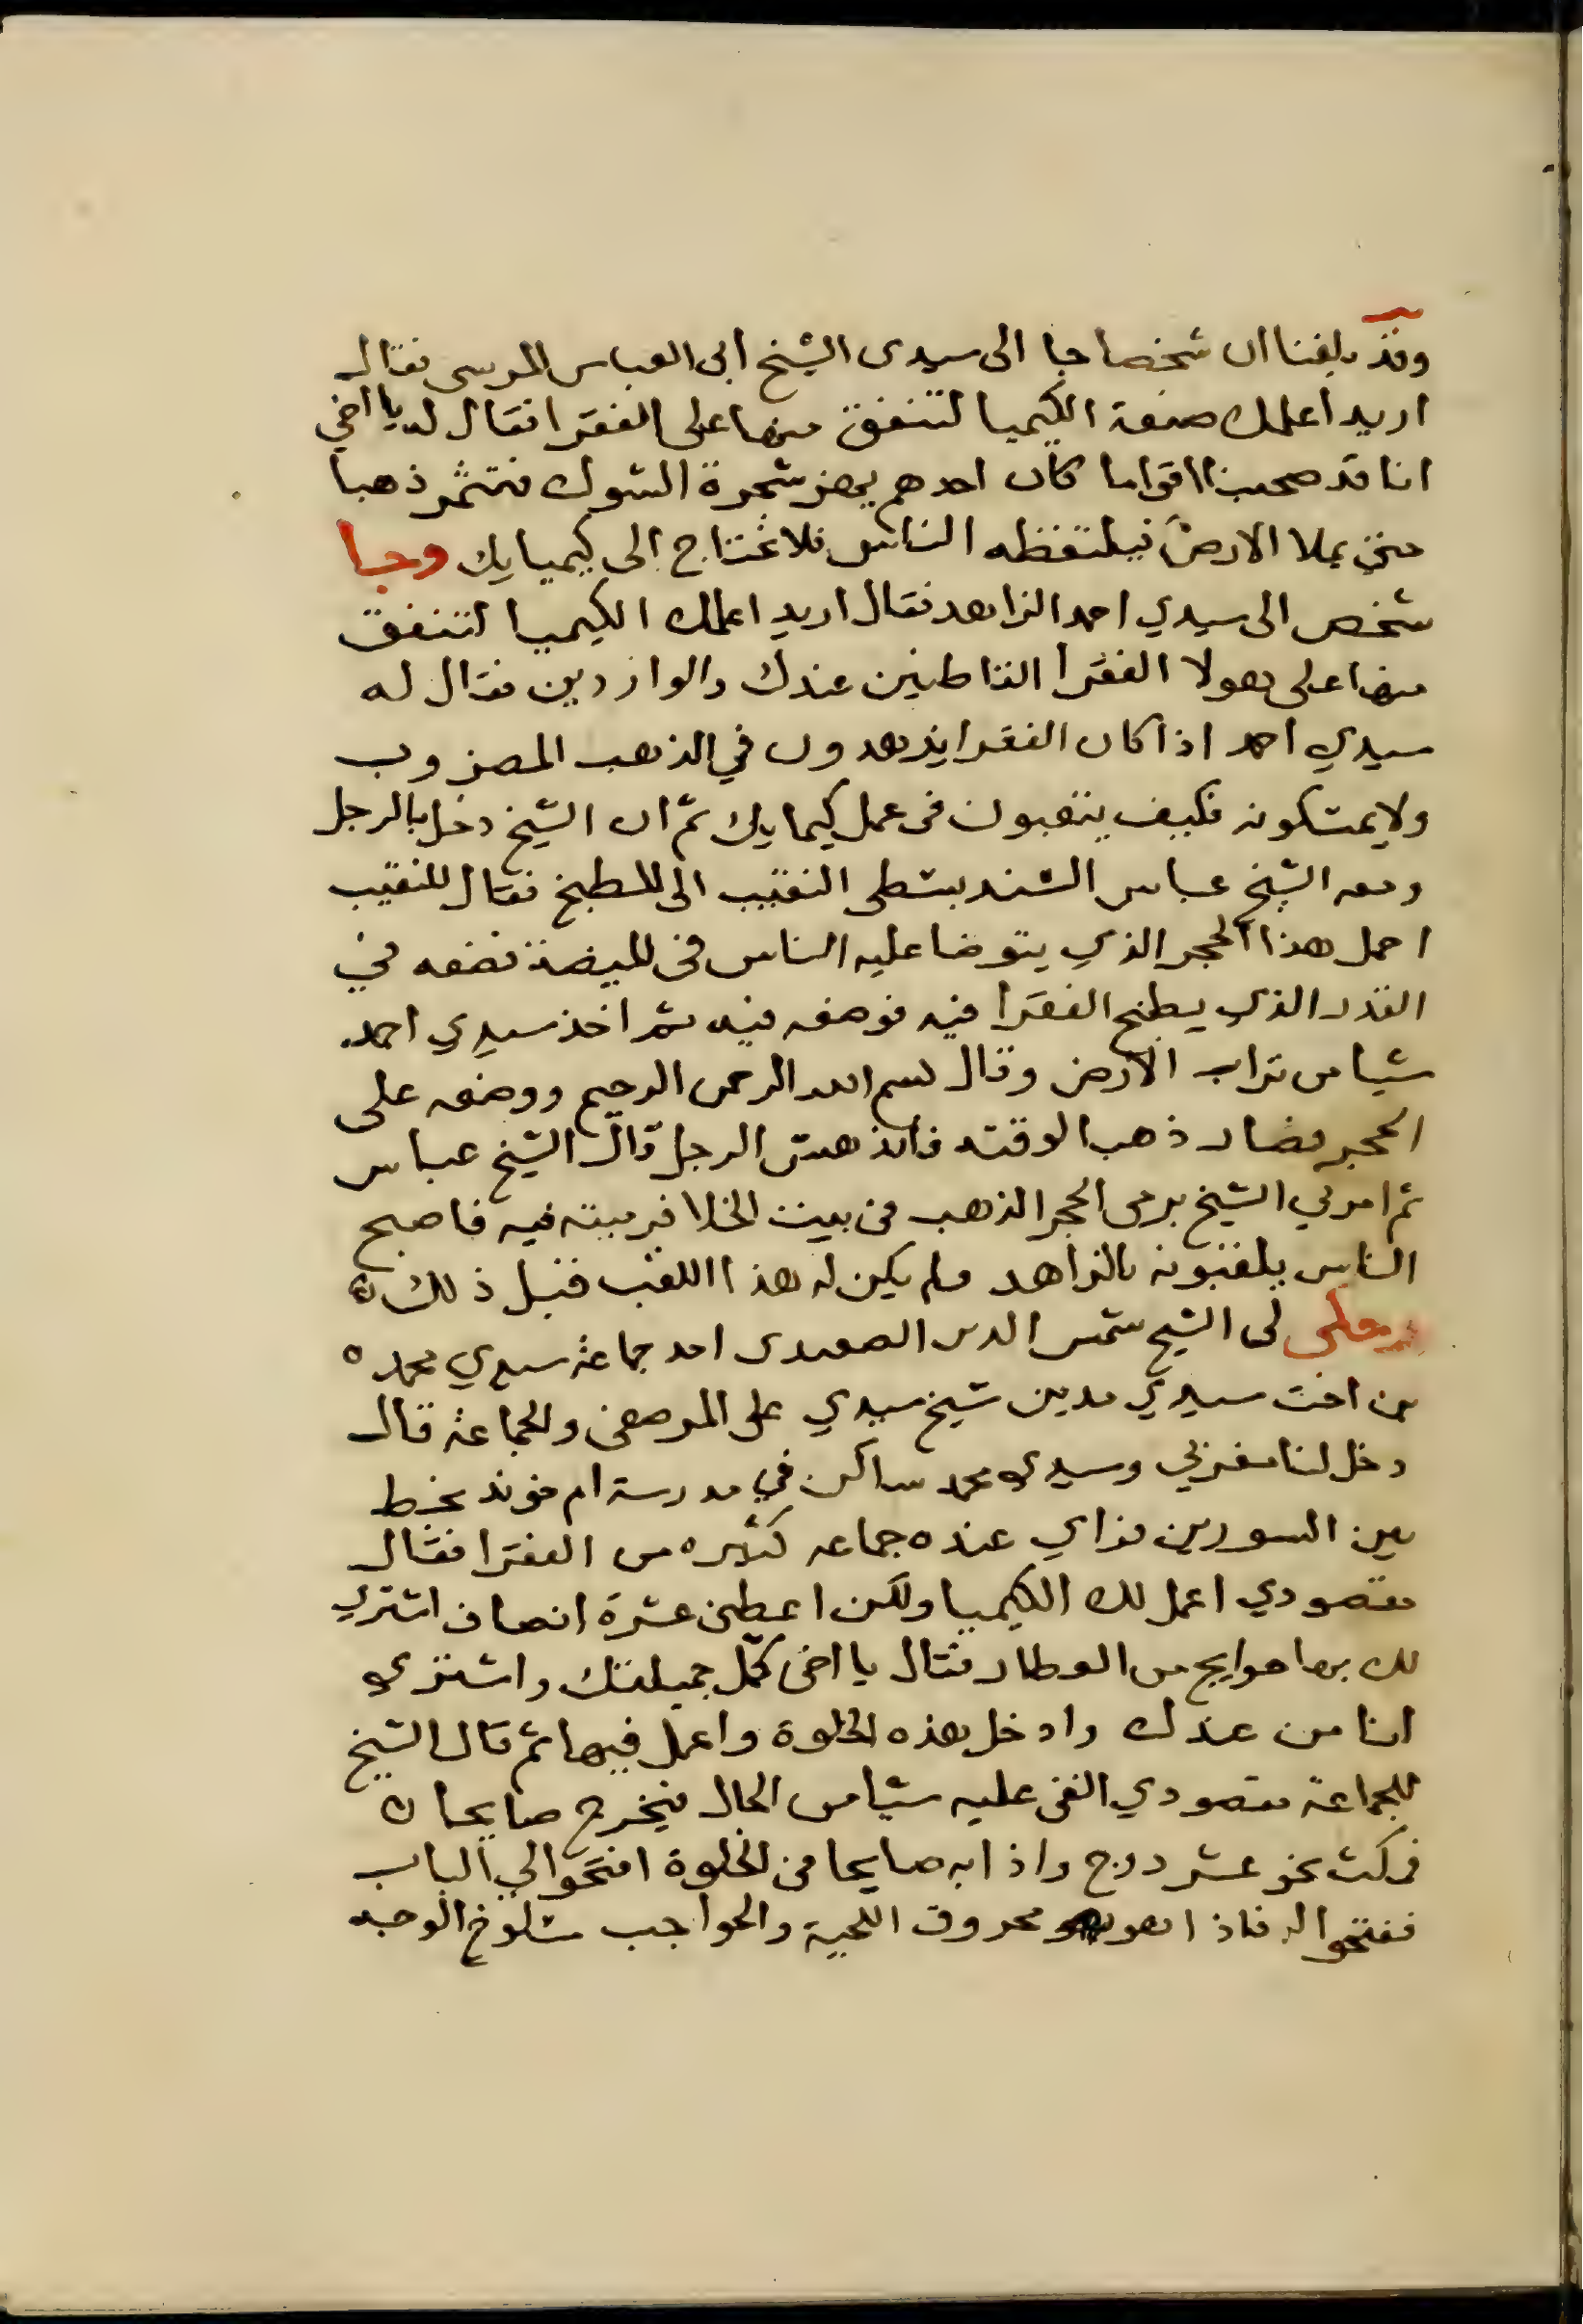 وقد بلغنا ان شخصا جا الى سيدى الشيخ ابى العباس المرسى فقال
اريد اعلمك صنعة الكيميا لتنفق منها على الفقرا فقال له يا اخي
انا قد صحبنا اقواما كان احدهم يهز شجرة الشوك فتثمر ذهبا
حتى يملا الارض فيلتقطه الناس فلا نحتاج الى كيميايك وجا
شخص الى سيدي احمد الزاهد فقال اريد اعلمك الكيميا لتنفق
منها على هولا الفقرا القاطنين عندك والواردين فقال له
سيدي احمد اذا كان الفقرا يزهدون في الذهب المضروب
ولا يمسكونه فكيف يتعبون فى عمل كيميايك ثم ان الشيخ دخل بالرجل
ومعه الشيخ عباس الشندبسطى النقيب الى المطبخ فقال للنقيب
احمل هذا الحجر الذي يتوضا عليه الناس فى الميضة فضعه في
القدر الذي يطبخ الفقرا فيه فوضعه فيه ثم اخذ سيدي احمد
شيا من تراب الارض وقال بسم الله الرحمن الرحيم ووضعه على
الحجر فصار ذهبا لوقته فاندهش الرجل قال الشيخ عباس
ثم امرني الشيخ برمى الحجر الذهب فى بيت الخلا فرميته فيه فاصبح
الناس يلقبونه بالزاهد ولم يكن له هذا اللقب قبل ذلك
وحكى لى الشيخ شمس الدين الصعيدى احد جماعة سيدي محمد
بن اخت سيدي مدين شيخ سيدي على المرصفى والجماعة قال
دخل لنا مغربي وسيدي محمد ساكن في مدرسة ام خوند بخط
بين السورين فراي عنده جماعه كثيره من الفقرا فقال
مقصودي اعمل لك الكيميا ولكن اعطنى عشرة انصاف اشتري
لك بها حوايج من العطار فقال يا اخى كمل جميلتك واشتري
انا من عندك وادخل هذه الخلوة واعمل فيها ثم قال الشيخ
للجماعة مقصودي القى عليه شيا من الحال فيخرج صايحا
فمكث نحو عشر درج واذا به صايحا من الخلوة افتحوا لي الباب
ففتحوا له فاذا هو محروق اللحية والحواجب مشلوخ الوجه